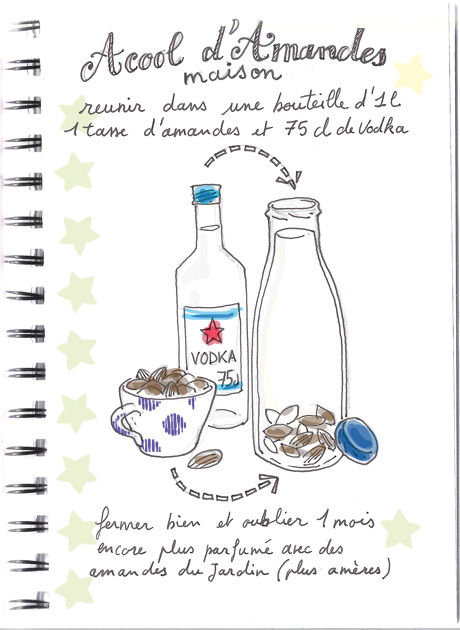 Acool d'Amandes
maison
reunir dans une bouteille d'1l
1 tasse d'amandes et 75 cl de Vodka
VODKA
75cl
fermer bien et oublier 1 mois
encore plus parfumé avec des
amandes du Jardin (plus amères)